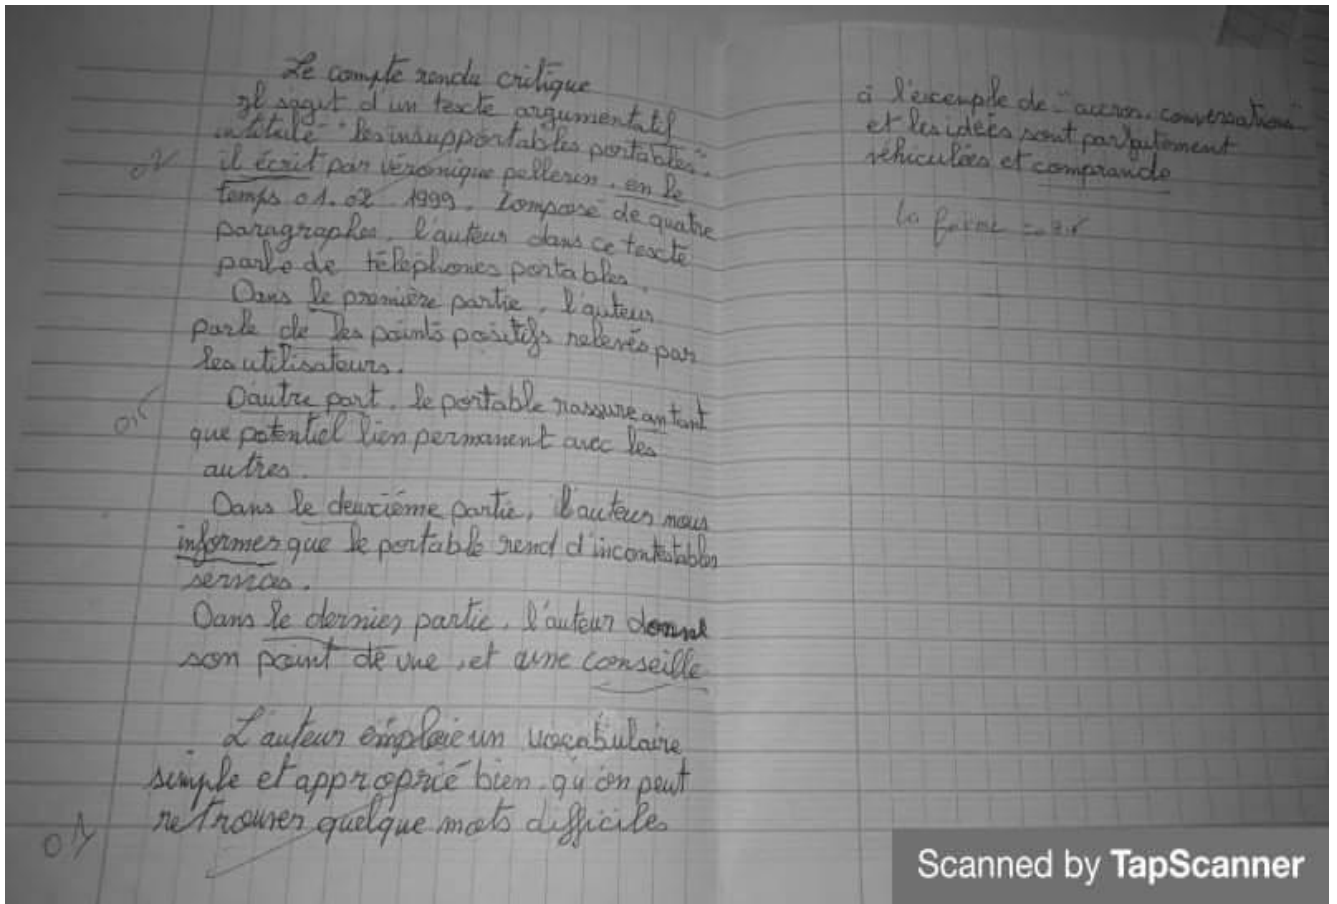 Le compte rendu critique
Il sagit d'un texte argumentatif
intitulé "les insupportables portables".
il écrit par véronique pellerin, en le
temps 01.02.1999. Composé de quatre
paragraphes, l'auteur dans ce texte
parle de téléphones portables.
Dans le première partie, l'auteur
parle de les points positifs relevés par
les utilisateurs.
D'autre part, le portable rassure an tant
que potentiel lien permanent avec les
autres.
Dans le deuxième partie, l'auteur nous
informer que le portable rend d'incontestables
services.
Dans le dernier partie, l'auteur donne
son point de vue, et une conseille
L'auteur emploie un vocabulaire
simple et approprié bien qu'on peut
retrouver quelque mots difficiles
01
à l'exemple de "accros, conversations"
et les idées sont parfaitement
véhiculées et comprande
la forme =
Scanned by TapScanner